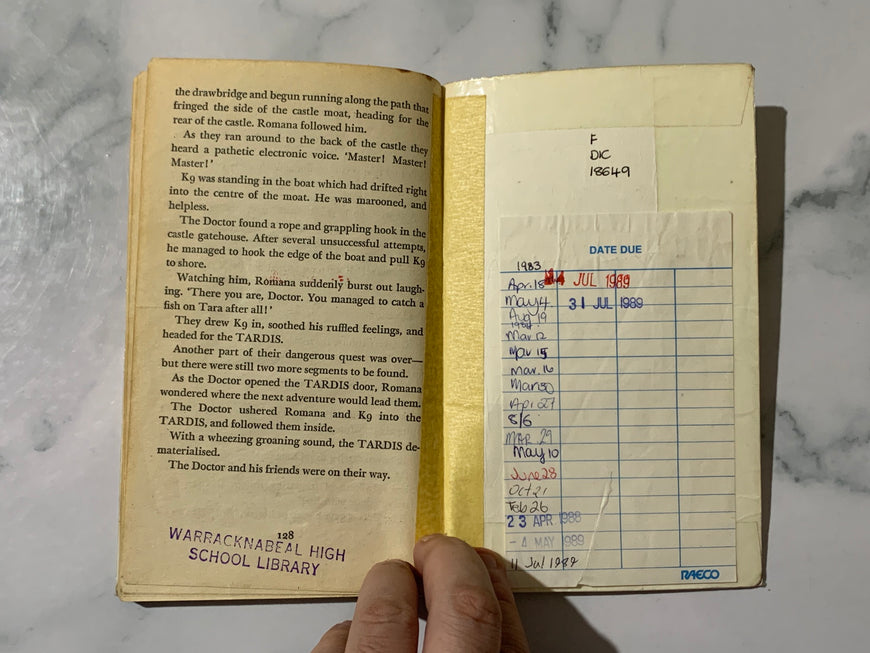 the drawbridge and begun running along the path that
fringed the side of the castle moat, heading for the
rear of the castle. Romana followed him.
As they ran around to the back of the castle they
heard a pathetic electronic voice. 'Master! Master!
Master!'
K9 was standing in the boat which had drifted right
into the centre of the moat. He was marooned, and
helpless.
The Doctor found a rope and grappling hook in the
castle gatehouse. After several unsuccessful attempts,
he managed to hook the edge of the boat and pull K9
to shore.
Watching him, Romana suddenly burst out laugh-
ing. 'There you are, Doctor. You managed to catch a
fish on Tara after all!'
They drew K9 in, soothed his ruffled feelings, and
headed for the TARDIS.
Another part of their dangerous quest was over—
but there were still two more segments to be found.
As the Doctor opened the TARDIS door, Romana
wondered where the next adventure would lead them.
The Doctor ushered Romana and K9 into the
TARDIS, and followed them inside.
With a wheezing groaning sound, the TARDIS de-
materialised.
The Doctor and his friends were on their way.
128
WARRACKNABEAL HIGH
SCHOOL LIBRARY
F
DIC
18649
DATE DUE
1983
Apr. 18 14 JUL 1989
May 4 31 JUL 1989
Aug 19
1984
Mar 12
Mar. 16
Apr 27
8/6
MAR 29
May 10
June 28
Oct 21
Feb 26
23 APR 1988
- 4 MAY 1989
11 Jul 1989
RAECO